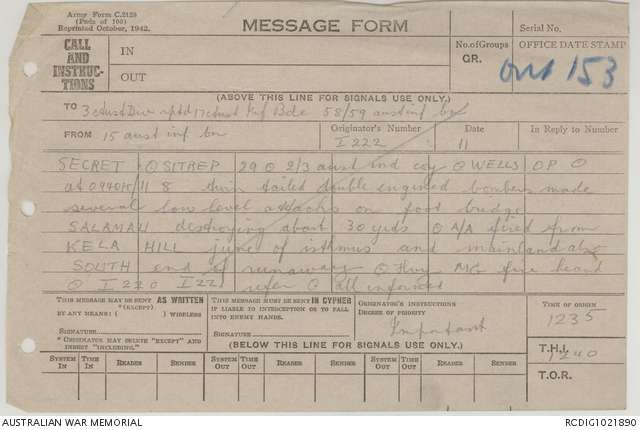 Army Form C.2128
(Pads of 100)
Reprinted October, 1942.
MESSAGE FORM
Serial No.
CALL
AND
INSTRUC-
TIONS
IN
OUT
No. of Groups
GR.
OFFICE DATE STAMP
153
(ABOVE THIS LINE FOR SIGNALS USE ONLY.)
TO 3 Aust Div rptd 17 Aust Inf Bde 58/59 aust inf bn
FROM 15 aust inf bn
Originator's Number
I 222
Date
11
In Reply to Number
SECRET O SITREP 29 O 2/3 aust ind coy O WELLS OP O
at 0940K/11 8 twin tailed double engined bombers made
several low level attacks on foot bridge
SALAMAU destroying about 30 yds O A/A fired from
KELA HILL junc of isthmus and mainland also
SOUTH end of runaway O Hvy MG fire heard
O I 220 I 221 refer O all informed
THIS MESSAGE MAY BE SENT AS WRITTEN
(*EXCEPT)
BY ANY MEANS: ( ) WIRELESS
SIGNATURE
* ORIGINATOR MAY DELETE "EXCEPT" AND
INSERT "INCLUDING."
THIS MESSAGE MUST BE SENT IN CYPHER
IF LIABLE TO INTERCEPTION OR TO FALL
INTO ENEMY HANDS.
SIGNATURE
ORIGINATOR'S INSTRUCTIONS
DEGREE OF PRIORITY
Important
TIME OF ORIGIN
1235
(BELOW THIS LINE FOR SIGNALS USE ONLY.)
T.H.I.
1240
T.O.R.
SYSTEM IN TIME IN READER SENDER SYSTEM OUT TIME OUT READER SENDER SYSTEM OUT TIME OUT READER SENDER
AUSTRALIAN WAR MEMORIAL
RCDIG1021890